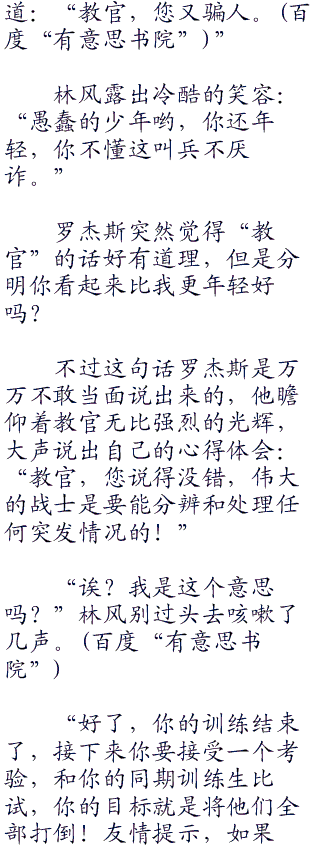 道：“教官，您又骗人。(百
度“有意思书院”)”
林风露出冷酷的笑容：
“愚蠢的少年哟，你还年
轻，你不懂这叫兵不厌
诈。”
罗杰斯突然觉得“教
官”的话好有道理，但是分
明你看起来比我更年轻好
吗？
不过这句话罗杰斯是万
万不敢当面说出来的，他瞻
仰着教官无比强烈的光辉，
大声说出自己的心得体会：
“教官，您说得没错，伟大
的战士是要能分辨和处理任
何突发情况的！”
“诶？我是这个意思
吗？”林风别过头去咳嗽了
几声。(百度“有意思书
院”)
“好了，你的训练结束
了，接下来你要接受一个考
验，和你的同期训练生比
试，你的目标就是将他们全
部打倒！友情提示，如果